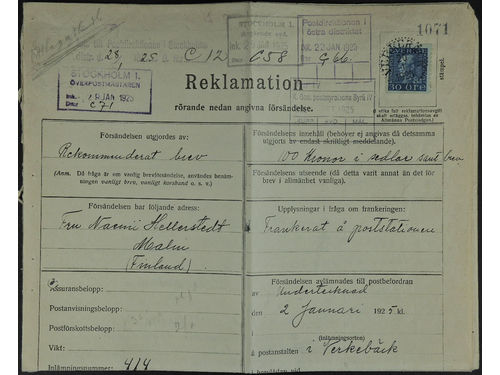 1071
STOCKHOLM 1.
Postdirektionen i
östra distriktet
Ink. 23 JAN. 1925
C 12
C 58
G 66.
STOCKHOLM 1.
ÖVERPOSTMÄSTAREN
Ink. 28 JAN. 1925
Dnr C 71
30 ÖRE
stämpel.
Reklamation
rörande nedan angivna försändelse.
Försändelsen utgjordes av:
Rekommenderat brev
(Anm. Då fråga är om vanlig brevförsändelse, användes benäm-
ningen vanligt brev, vanligt korsband o. s. v.)
Försändelsens innehåll (behöver ej angivas då detsamma
utgjorts av endast skriftligt meddelande):
100 Kronor i sedlar samt brev
Försändelsens utseende (då detta varit annat än det för
brev i allmänhet vanliga).
Försändelsen bar följande adress:
Fru Naemi Hellerstedt
Malm
(Finland)
Upplysningar i fråga om frankeringen:
Frankerat å poststationen
Assuransbelopp:
Postanvisningsbelopp:
Postförskottsbelopp:
Vikt:
Inlämningsnummer: 414
Försändelsen avlämnades till postbefordran
av Undertecknad
den 2 Januari 1925 kl.
(Inlämningsorten)
å postanstalten i Verkebäck